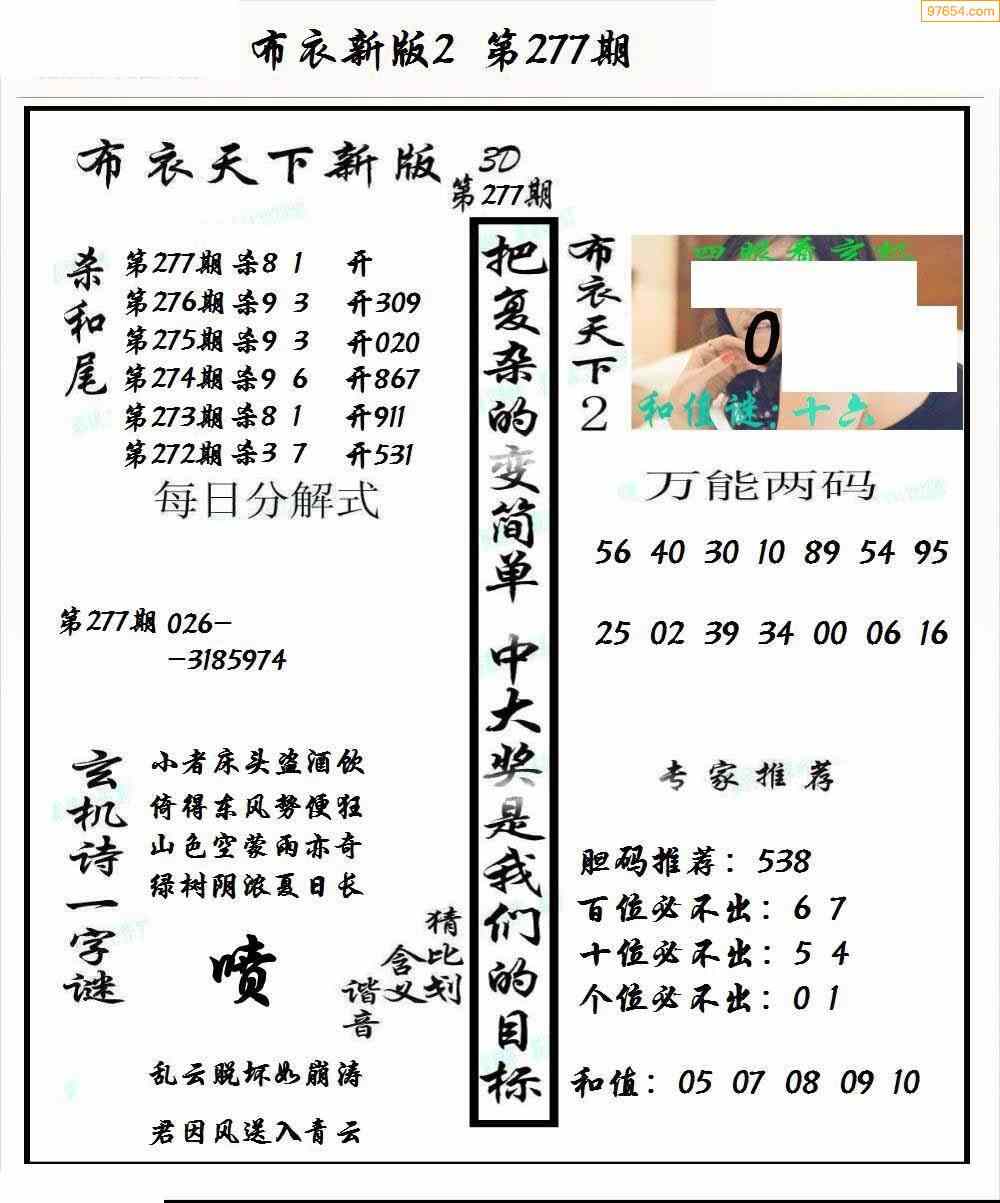 97654.com
布衣新版2 第277期
布衣天下新版
3D
第277期
杀和尾
第277期 杀8 1 开
第276期 杀9 3 开309
第275期 杀9 3 开020
第274期 杀9 6 开867
第273期 杀8 1 开911
第272期 杀3 7 开531
每日分解式
第277期 026-
-3185974
玄机诗一字谜
小者床头盗酒饮
倚得东风势便狂
山色空蒙雨亦奇
绿树阴浓夏日长
喷
猜比划
含义
谐音
乱云脱坏如崩涛
君因风送入青云
把复杂的变简单 中大奖是我们的目标
布衣天下2
四眼看玄机
0
和值谜:十六
万能两码
56 40 30 10 89 54 95
25 02 39 34 00 06 16
专家推荐
胆码推荐：538
百位必不出：6 7
十位必不出：5 4
个位必不出：0 1
和值：05 07 08 09 10